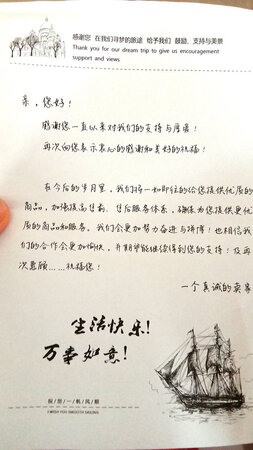 感谢您 在我们寻梦的旅途 给予我们 鼓励，支持与美景
Thank you for our dream trip to give us encouragement
support and views
亲，您好！
感谢您一直以来对我们的支持与厚爱！
再次向您表示衷心的感谢和美好的祝福！
在今后的岁月里，我们将一如即往的给您提供优质
的商品，加强提高售前、售后服务体系，确保为您提供更优
质的商品和服务。我们会更加努力奋进与拼博！也相信我
们的合作会更加愉快，并期望能继续得到您的支持！及再
次惠顾……祝福您！
一个真诚的卖家
生活快乐！
万事如意！
祝您一帆风顺
I WISH YOU SMOOTH SAILING